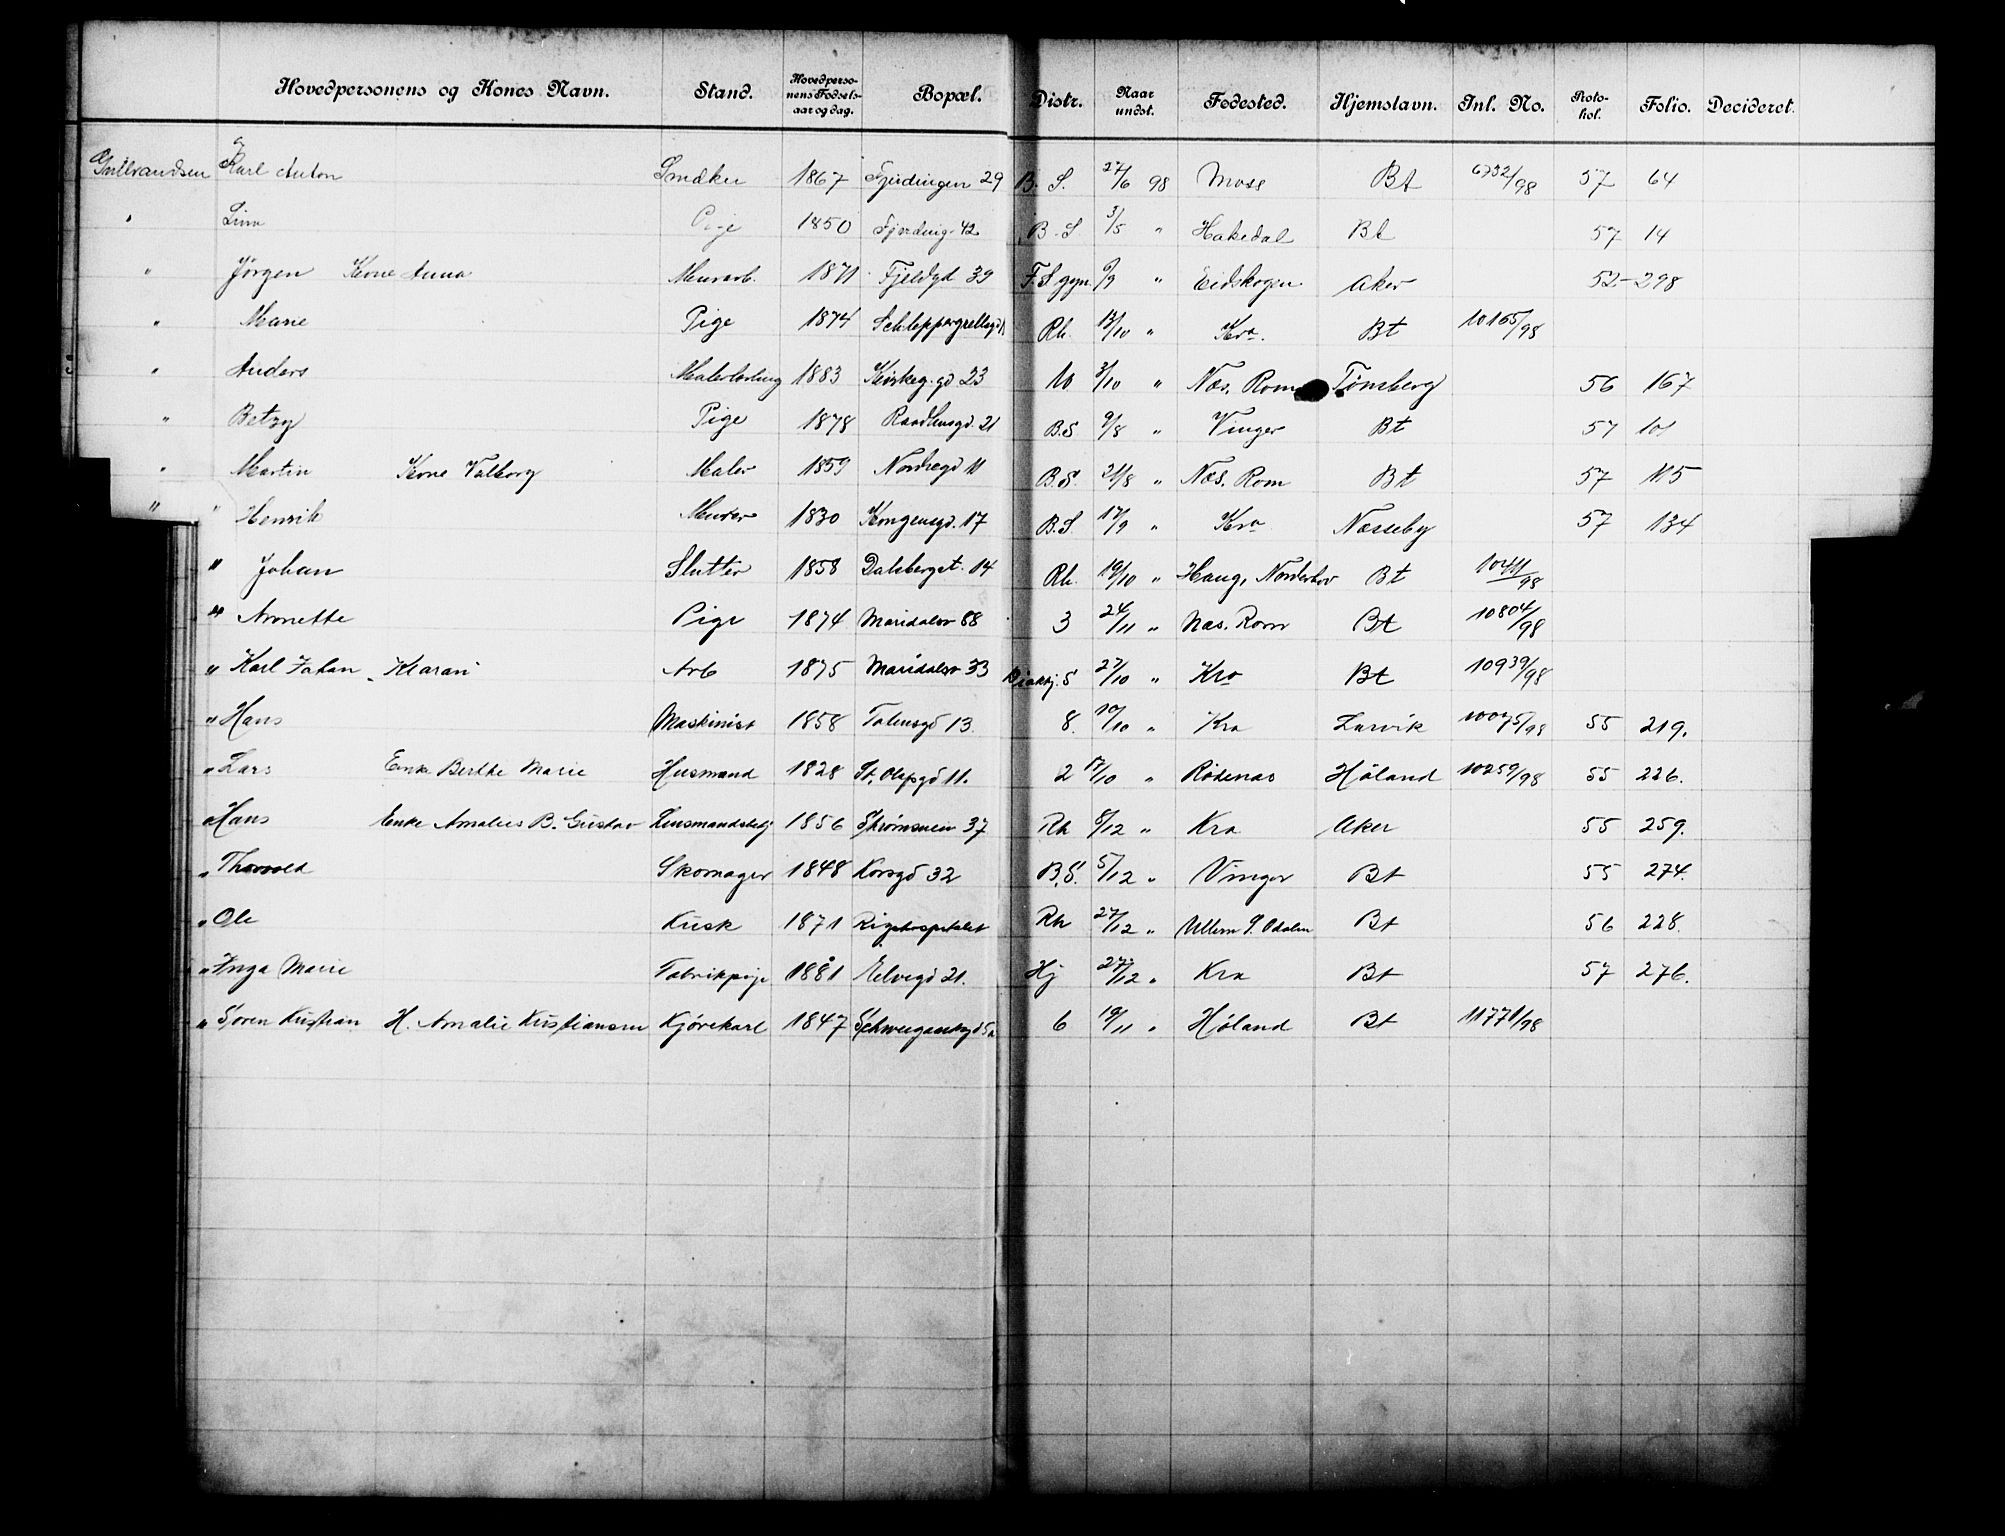 Hovedpersonens og Kones Navn. Stand. Hovedpersonens Fødselsaar og dag. Bopæl. Distr. Naar undst. Fødested. Hjemstavn. Inl. No. Protokol. Folio. Decideret.
Gulbrandsen Karl Anton Snedker 1867 Fjerdingen 29 B. S. 27/6 98 Moss Bt 6732/98 57 64
" Lina Pige 1850 Fjerding. 42 B. S. 3/5 " Hakedal Bt 57 14
" Jørgen Kone Anna Murarb. 1871 Fjeldgd 39 F. S gyn. " Eidskogen Aker 52 - 298
" Marie Pige 1874 Rh. 12/10 " Kra. Bt 10165/98
" Anders Malerlærling 1883 Kirkeg. gd 23 10 3/10 " Næs. Rom Tønsberg 56 167
" Betsy Pige 1878 Raadhusgd. 21 B.S 9/8 " Vinger Bt 57 101
" Martin Kone Valborg Maler 1859 Nordregd 11 B.S. 24/8 " Næs. Rom Bt 57 115
" " Henrik Murer 1830 Kongensgd. 17 B.S. 17/9 " Kra Næsseby 57 134
" Johan Slutter 1858 Dalsbergst. 14 Rh. 19/10 " Haug, Norderhov Bt 10411/98
" Annette Pige 1874 Maridalsv 88 3 24/11 " Næs. Rom Bt 10804/98
" Karl Johan Arb 1875 Maridalsv 33 Diakhj. S 27/10 " Kra Bt 10939/98
" Hans Maskinist 1858 Tøiensgd 13. 8. 10/10 " Kra Larvik 10075/98 55 219.
" Lars Enke Berthe Marie Husmand 1828 St. Olafsgd 11. 2 17/10 " Rødenæs Høland 10259/98 55 226.
" Hans Enke Amalies B. Gustav Lensmandsbetj 1856 Strømsveien 37 Rh 8/12 " Kra Aker 55 259.
" Thorvald Skomager 1848 Korsgd 32 B.S. 5/12 " Vinger Bt 55 274.
" Ole Kusk 1871 Rigshospitalet Rh 27/12 " Ullern S. Odalen Bt 56 228.
" Inga Marie Fabrikpige 1881 Elvegd 21. Hj 27/12 " Kra Bt 57 276.
" Søren Kristian H. Amalie Kristiansen Kjørekarl 1847 Schweigaardsgd 5a 6 19/11 " Høland Bt 11771/98